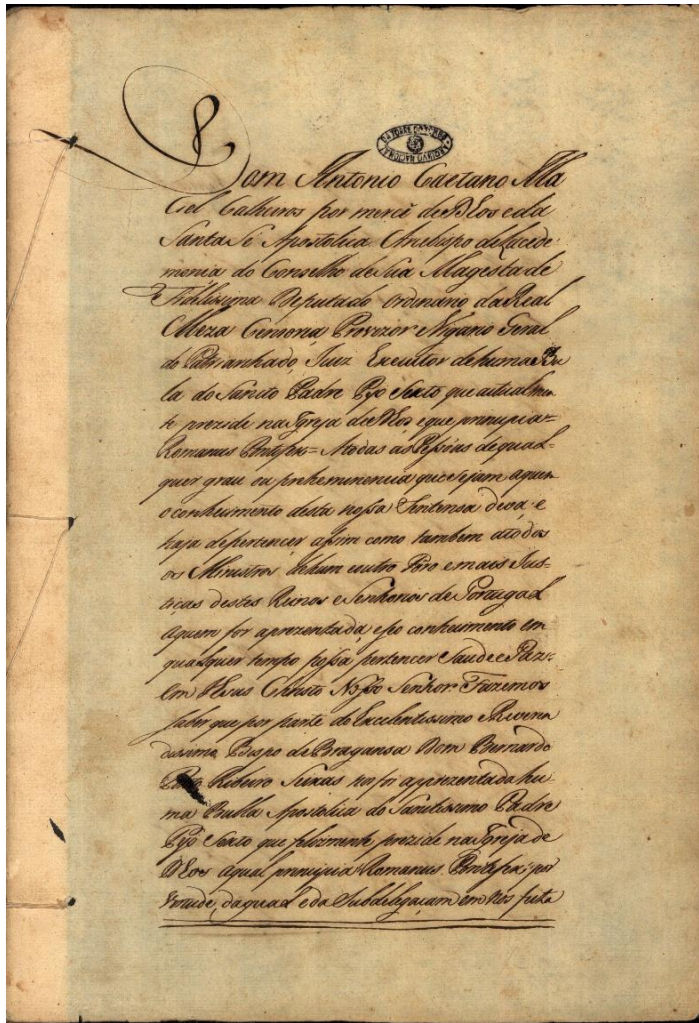 DA TORRE DO TOMBO
ARQUIVO NACIONAL
Dom Antonio Caetano Ma
ciel Calheiros por mercê de Deos e da
Santa Sé Apostolica Arcebispo de Lacede-
monia do Conselho de Sua Magestade
Fidelissima Deputado Ordinario da Real
Meza Censoria, Provizor Vigario Geral
do Patriarchado, Juiz Executor de huma Bu
la do Sancto Padre Pyo Sexto que actualmen
te prezide na Igreja de Deos, e que principia=
Romanus Pontifex= A todas as Pessoas de qual-
quer grau ou preheminencia que sejam aquem
o conhecimento desta nossa Sentensa deva e
haja de pertencer assim como tambem a todos
os Ministros de hum e outro Foro e mais Jus-
tiças destes Reinos e Senhorios de Portugal
aquem for aprezentada, e seo conhecimento em
qualquer tempo possa pertencer Saude e Paz-
em Jesus Christo Nosso Senhor Fazemos
saber que por parte do Excelentissimo e Reveren
dissimo Bispo de Bragansa Dom Bernardo
Pinto Ribeiro Seixas nos foi aprezentada hu
ma Bulla Apostolica do Santissimo Padre
Pyo Sexto que felizmente prezide na Igreja de
Deos aqual principia Romanus Pontifex, por
virtude, da qual e da Subdelegaçam em nós feita